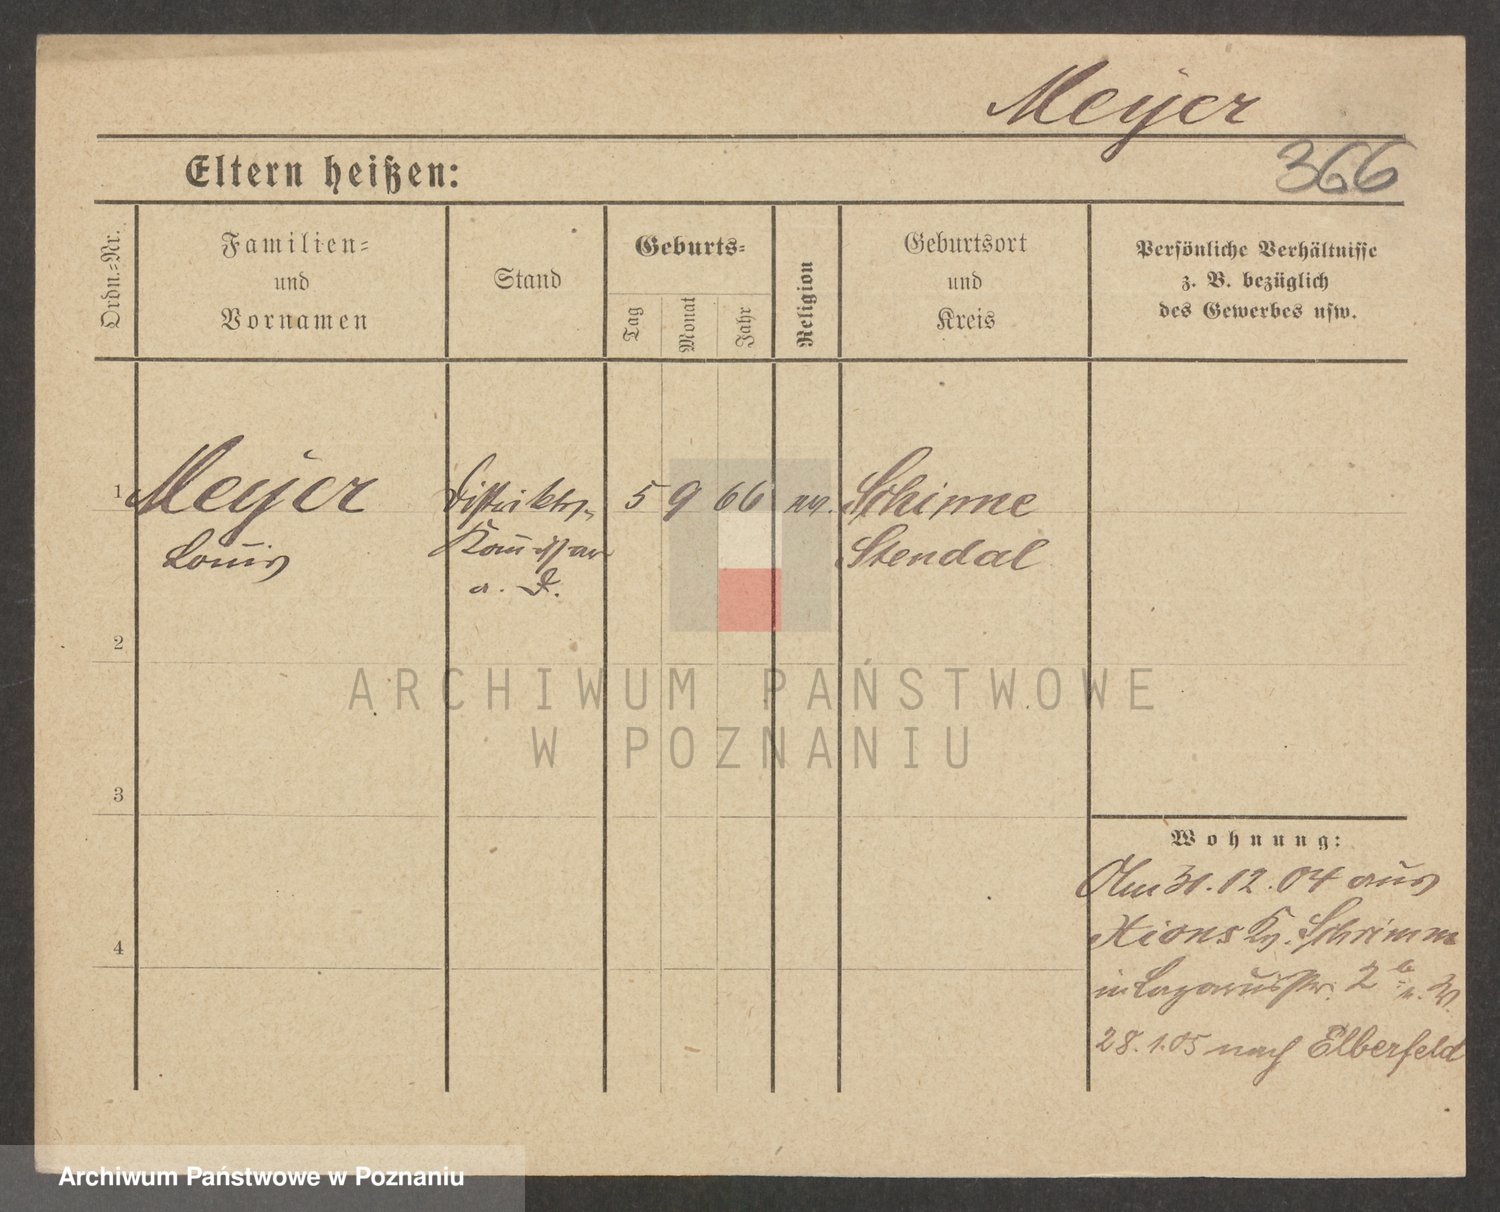 Meyer
366
Eltern heißen:
Ordn.=Nr.
Familien=
und
Vornamen
Stand
Geburts=
Tag
Monat
Jahr
Religion
Geburtsort
und
Kreis
Persönliche Verhältnisse
z. B. bezüglich
des Gewerbes usw.
1 Meyer Distrikts- 5 9 66 ev. Schinne
Louis Kom̄issar Stendal
a. D.
2
3
4
ARCHIWUM PAŃSTWOWE
W POZNANIU
Wohnung:
Am 31.12.04 aus
Xions Kr. Schrimm
in Lazarusstr. 2
28.1.05 nach Elberfeld
Archiwum Państwowe w Poznaniu